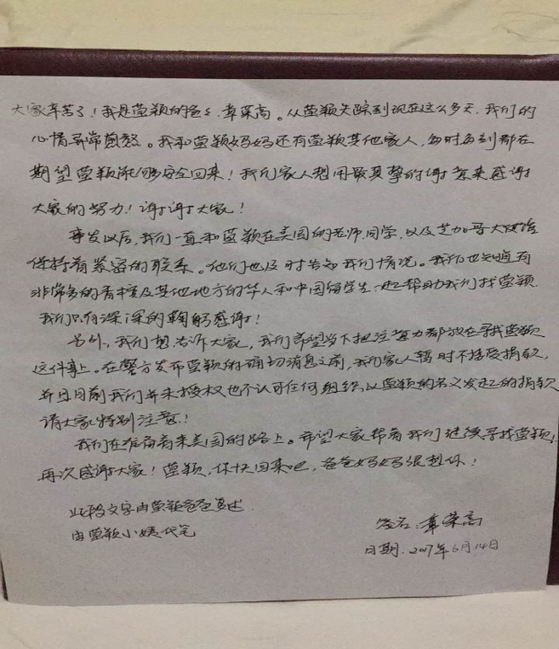 大家辛苦了！我是莹颖的爸爸，章荣高。从莹颖失踪到现在这么多天，我们的
心情异常煎熬。我和莹颖妈妈还有莹颖其他家人，每时每刻都在
期望莹颖能够安全回来！我们家人想用最真挚的谢意来感谢
大家的努力！谢谢大家！
事发以后，我们一直和莹颖在美国的老师，同学，以及芝加哥大使馆
保持着紧密的联系。他们也及时告知我们情况。我们也知道有
非常多的香槟及其他地方的华人和中国留学生一起帮助我们找莹颖
我们只有深深的鞠躬感谢！
另外，我们想告诉大家，我们希望当下把注意力都放在寻找莹颖
这件事上。在警方发布莹颖的确切消息之前，我们家人暂时不接受捐款，
并且目前我们并未授权也不认可任何组织以莹颖的名义发起的捐款，
请大家特别注意！
我们在准备着来美国的路上。希望大家帮着我们继续寻找莹颖，
再次感谢大家！莹颖，你快回来吧，爸爸妈妈很想你！
此段文字由莹颖爸爸口述
由莹颖小姨代笔
签名：章荣高
日期：2017年6月14日